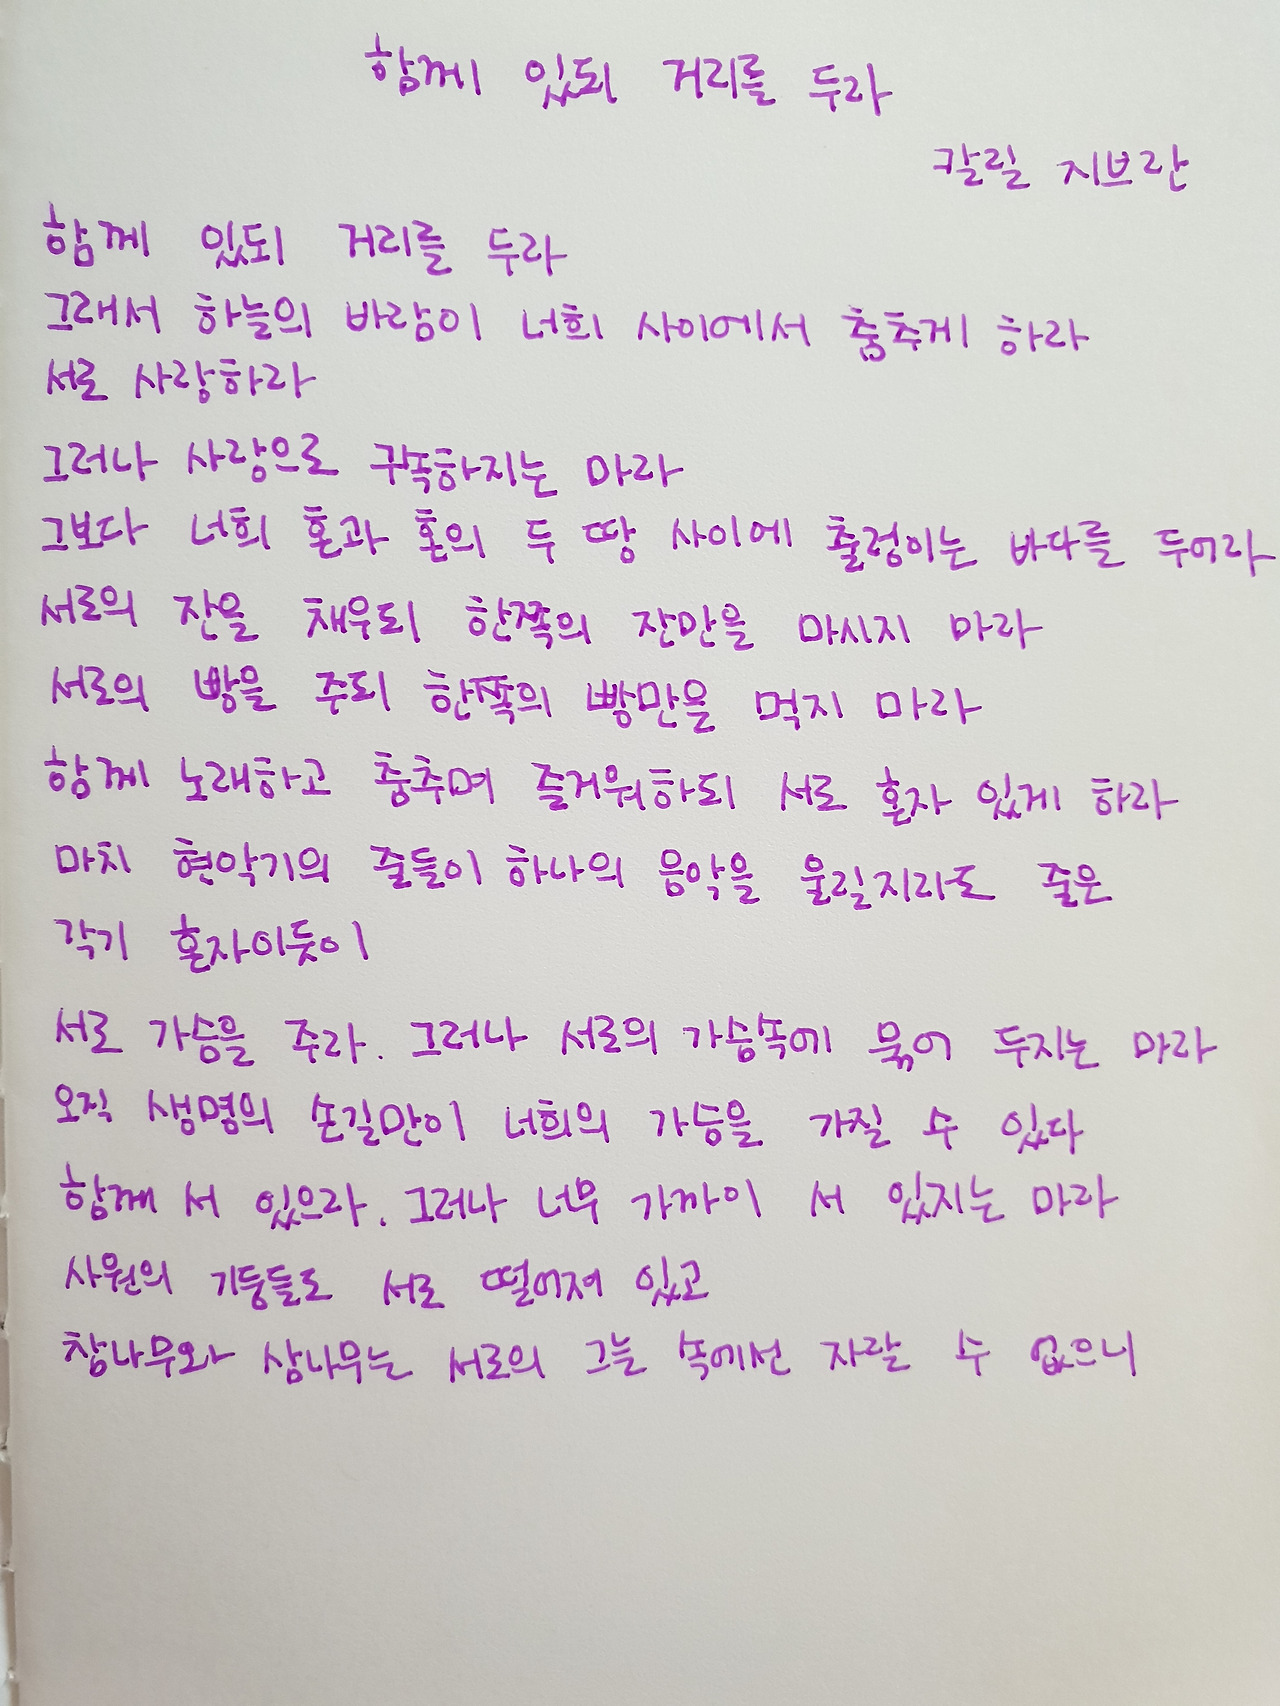 함께 있되 거리를 두라
칼릴 지브란
함께 있되 거리를 두라
그래서 하늘의 바람이 너희 사이에서 춤추게 하라
서로 사랑하라
그러나 사랑으로 구속하지는 마라
그보다 너희 혼과 혼의 두 땅 사이에 출렁이는 바다를 두어라
서로의 잔을 채우되 한쪽의 잔만을 마시지 마라
서로의 빵을 주되 한쪽의 빵만을 먹지 마라
함께 노래하고 춤추며 즐거워하되 서로 혼자 있게 하라
마치 현악기의 줄들이 하나의 음악을 울릴지라도 줄은
각기 혼자이듯이
서로 가슴을 주라. 그러나 서로의 가슴속에 묶어 두지는 마라
오직 생명의 손길만이 너희의 가슴을 가질 수 있다
함께 서 있으라. 그러나 너무 가까이 서 있지는 마라
사원의 기둥들도 서로 떨어져 있고
참나무와 삼나무는 서로의 그늘 속에선 자랄 수 없으니